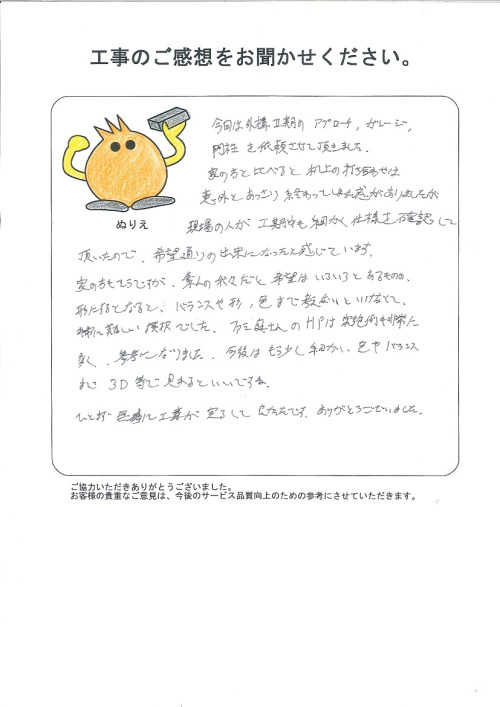 工事のご感想をお聞かせください。
今回は外構工期の アプローチ、ガレージ、
門柱 を依頼させて頂きました。
家の方と比べると 机上の打ち合わせは
意外と あっさり 終わってしまった感がありましたが
ぬりえ
現場の人が 工期中も 細かく 仕様を 確認して
頂いたので、希望通りの出来になったと感じています。
家の方もそうですが、素人の我々だと 希望は いろいろと あるものの、
形にするとなると、バランスや形、色まで 教ないといけなくて、
非常に難しい 選択でした。 さんのHPは 実施例も非常に
多く、参考になりました。今後は もう少し 細かい、色や バランス
まで 3D等で 見れると いいですね。
ひとまず 無事に 工事が 完了して 良かったです。ありがとうございました。
ご協力いただきありがとうございました。
お客様の貴重なご意見は、今後のサービス品質向上のための参考にさせていただきます。